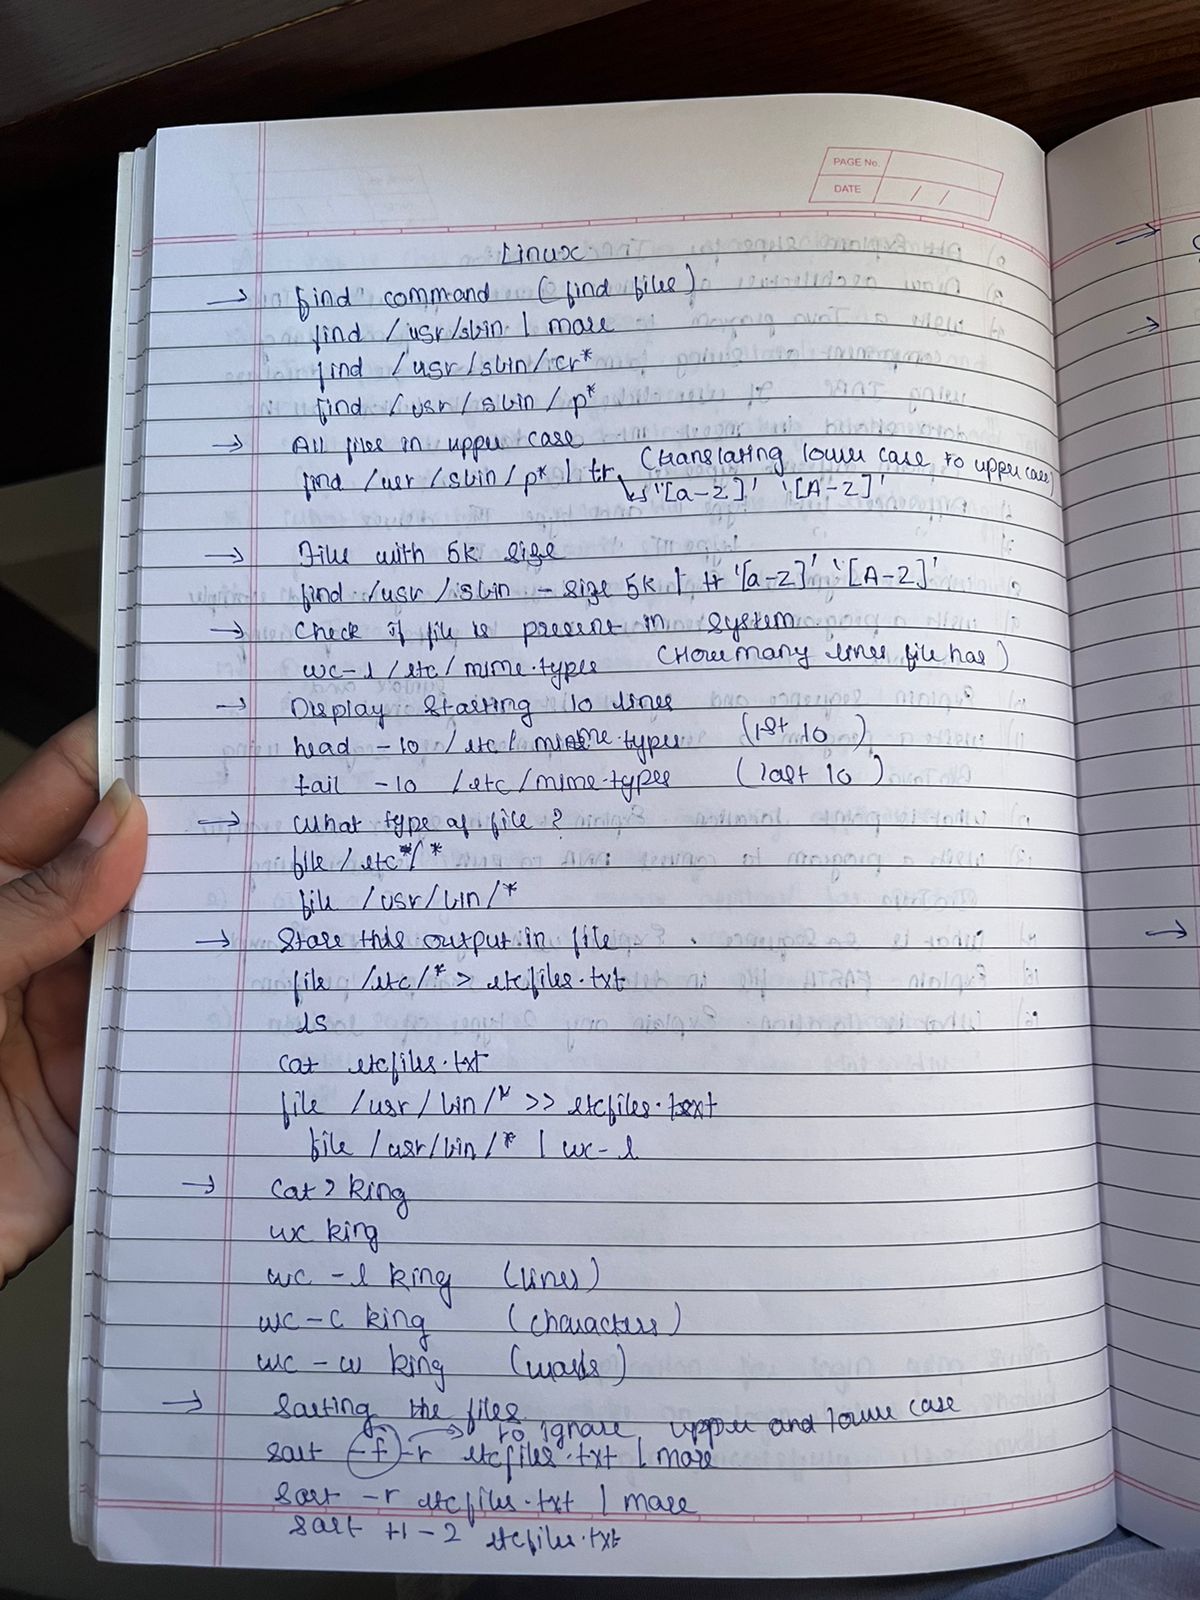 PAGE No.
DATE / /
Linux
→ find command (find files)
find /usr/sbin | more
find /usr/sbin/cr*
find /usr/sbin/p*
→ All files in upper case
(translating lower case to upper case)
find /usr/sbin/p* | tr
↳ '[a-z]' '[A-Z]'
→ Files with 5k size
find /usr/sbin - size 5k | tr '[a-z]' '[A-Z]'
→ Check if file is present in system
wc-l /etc/mime.types (How many lines file has)
→ Display starting 10 lines
head -10 /etc/mime.types (1st 10)
tail -10 /etc/mime.types (last 10)
→ What type of file?
file /etc*/*
file /usr/bin/*
→ Store this output in file
file /etc/* > etcfiles.txt
ls
cat etcfiles.txt
file /usr/bin/* >> etcfiles.text
file /usr/bin/* | wc-l
→ cat > king
wc king
wc -l king (lines)
wc -c king (characters)
wc - w king (words)
→ Sorting the files
→ to ignore upper and lower case
sort -f -r etcfiles.txt | more
sort -r etcfiles.txt | more
sort +1 -2 etcfiles.txt